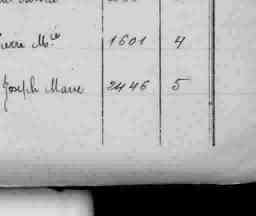 Pierre Mie 1601 4
Joseph Marie 2446 5